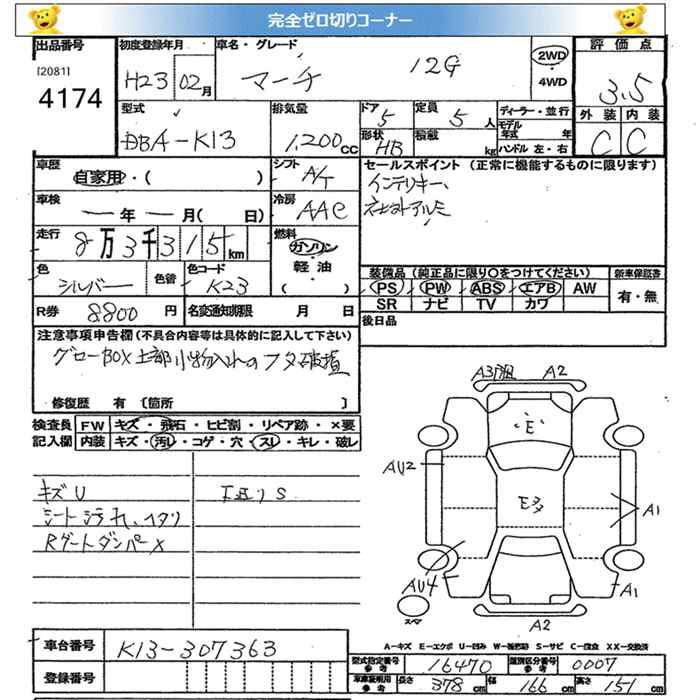 完全ゼロ切りコーナー
出品番号 初度登録年月 車名・グレード 評価点
[2081] H23 02月 マーチ 12G 2WD
4174 4WD 3.5
型式 排気量 ドア 定員 ディーラー・並行 外装 内装
DBA-K13 1,200cc 5 5人 モデル年式 年 C C
形状 HB 積載 kg ハンドル 左・右
車歴 シフト セールスポイント (正常に機能するものに限ります)
自家用・( ) A/T インテリキー、
車検 冷房 社外アルミ
ー年ー月( 日) AAC
走行 燃料
8万3千315km ガソリン
色 色替 色コード 軽油 装備品 (純正品に限り○をつけてください) 新車保証書
シルバー K23 ・( ) PS PW ABS エアB AW 有・無
R券 8800円 名変通知期限 月 日 SR ナビ TV カワ
後日品
注意事項申告欄 (不具合内容等は具体的に記入して下さい)
グローBOX上部小物入れのフタ破損
修復歴 有 [箇所 ]
検査員 FW キズ・飛石・ヒビ割・リペア跡・×要
記入欄 内装 キズ・汚レ・コゲ・穴・スレ・キレ・破レ
キズU
シートシミ
Rゲートダンパー×
A3 A2
E
AU2
E3
A1
AU4
A1
スペア
A2
A-キズ E-エクボ U-凹み W-補修跡 S-サビ C-腐食 XX-交換済
車台番号 K13-307363
登録番号
型式指定番号 参考 16470 類別区分番号 参考 0007
車庫証明用 参考 長さ 378cm 幅 166cm 高さ 151cm